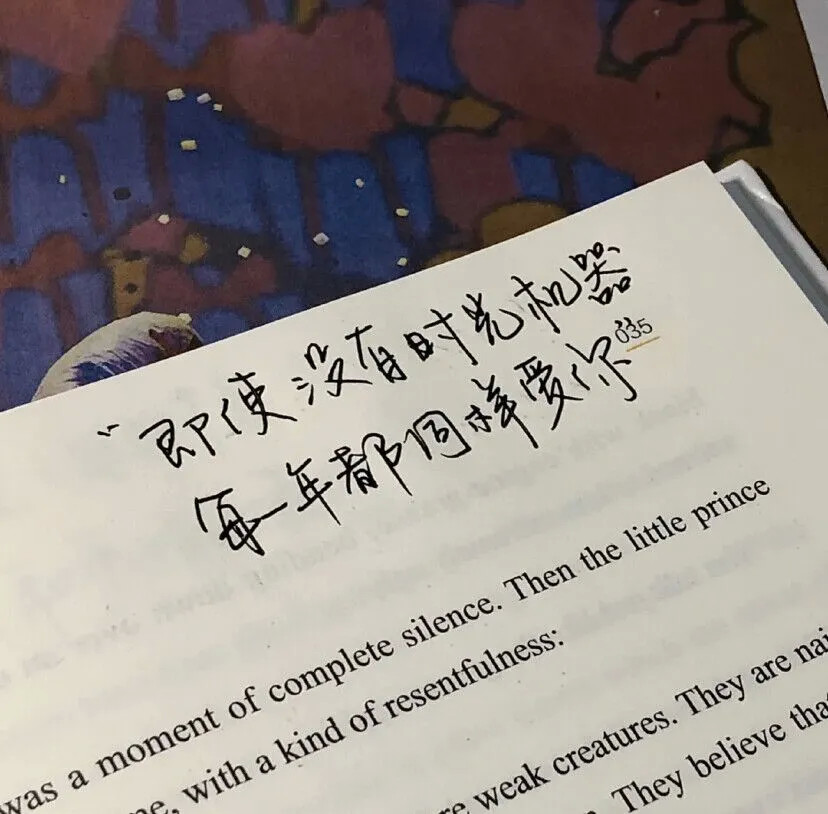 “即使没有时光机器
035
每一年都同样爱你”
was a moment of complete silence. Then the little prince
, with a kind of resentfulness:
weak creatures. They are
They believe